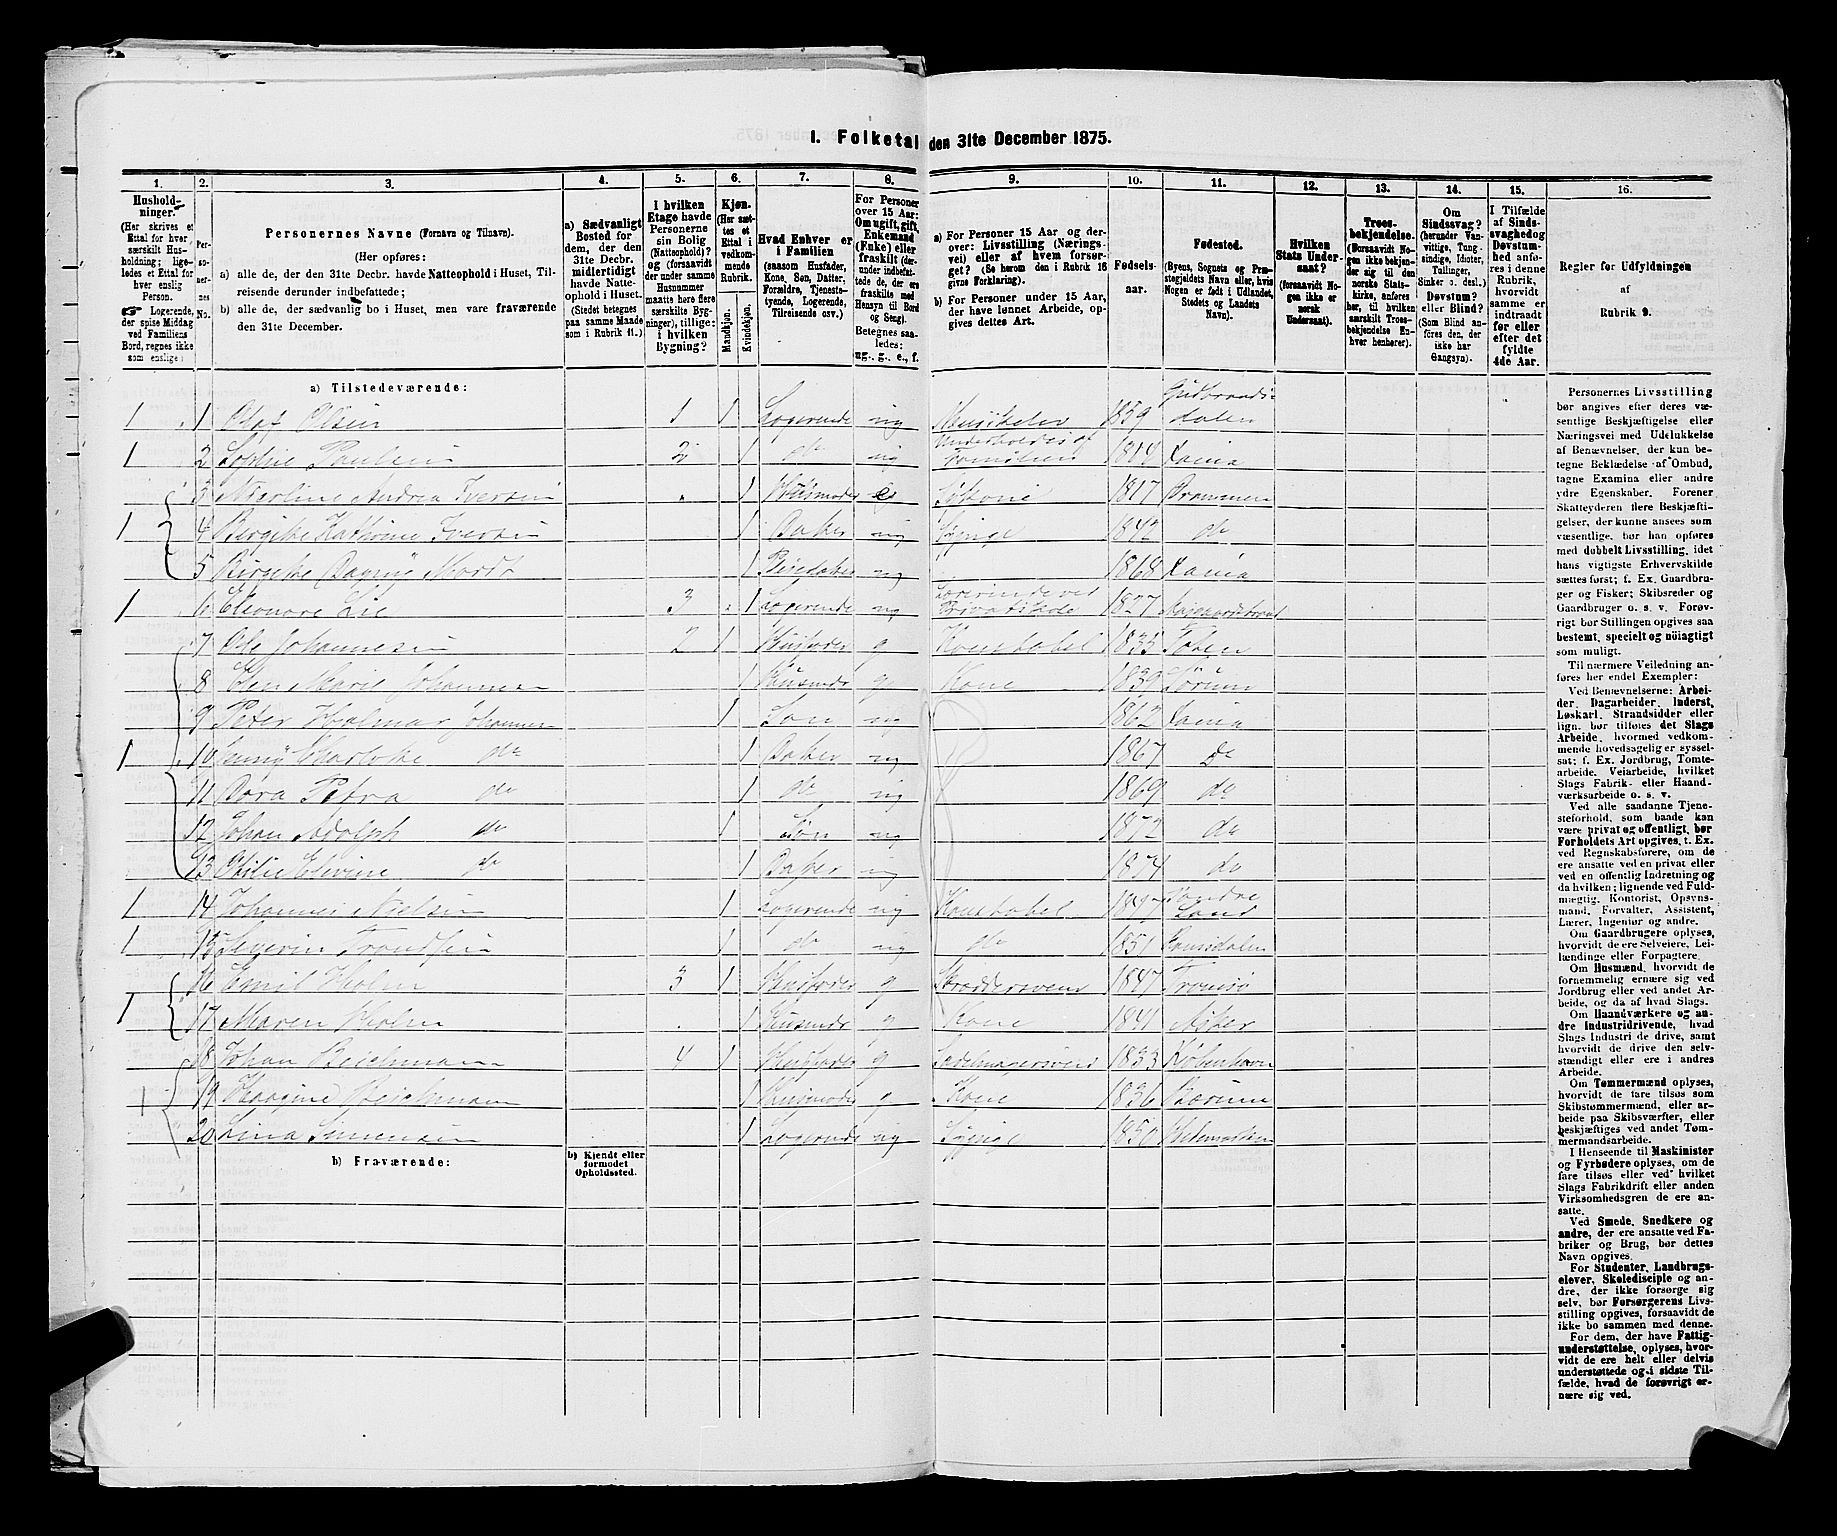 I. Folketal den 31te December 1875.
1. 2. 3. 4. 5. 6. 7. 8. 9. 10. 11. 12. 13. 14. 15. 16.
Hushold-
ninger.
(Her skrives et
Ettal for hver
særskilt Hus-
holdning; lige-
ledes et Ettal for
hver enslig
Person.
☞ Logerende,
der spise Middag
ved Familiens
Bord, regnes ikke
som enslige.)
Per-
so-
ner-
nes
No.
Personernes Navne (Fornavn og Tilnavn).
(Her opføres:
a) alle de, der den 31te Decbr. havde Natteophold i Huset, Til-
reisende derunder indbefattede;
b) alle de, der sædvanlig bo i Huset, men vare fraværende
den 31te December.
a) Sædvanligt
Bosted for
dem, der den
31te Decbr.
midlertidigt
havde Natte-
ophold i Huset.
(Stedet betegnes
paa samme Maade
som i Rubrik 11.)
I hvilken
Etage havde
Personerne
sin Bolig
(Natteophold)?
og (forsaavidt
der under samme
Husnummer
maatte høre flere
særskilte Byg-
ninger), tillige:
i hvilken
Bygning?
Kjøn.
(Her sæt-
tes et
Ettal i
vedkom-
mende
Rubrik.
Mandkjøn.
Kvindekjøn.
Hvad Enhver er
i Familien
(saasom Husfader,
Kone, Søn, Datter,
Forældre, Tjeneste-
tyende, Logerende,
Tilreisende osv.)
For Personer
over 15 Aar:
Om ugift, gift,
Enkemand
(Enke) eller
fraskilt (der-
under indbefat-
tede de, der ere
fraskilte med
Hensyn til Bord
og Seng).
Betegnes saa-
ledes:
ug., g., e., f.
a) For Personer 15 Aar og der-
over: Livsstilling (Nærings-
vei) eller af hvem forsør-
get? (Se herom den i Rubrik 16
givne Forklaring).
b) For Personer under 15 Aar,
der have lønnet Arbeide, op-
gives dettes Art.
Fødsels-
aar.
Fødested.
(Byens, Sognets og Præ-
stegjeldets Navn eller, hvis
Nogen er født i Udlandet,
Stedets og Landets
Navn).
Hvilken
Stats Under-
saat?
(forsaavidt No-
gen ikke er
norsk
Undersaat).
Troes-
bekjendelse.
(Forsaavidt No-
gen ikke bekjen-
der sig til den
norske Stats-
kirke, anføres
her, til hvilken
særskilt Troes-
bekjendelse En-
hver henhører).
Om
Sindssvag?
(herunder Van-
vittige, Tung-
sindige, Idioter,
Tullinger,
Sinker o. desl.)
Døvstum?
eller Blind?
(Som Blind an-
føres den, der
ikke har
Gangsyn).
I Tilfælde
af Sinds-
svaghed og
Døvstum-
hed anfø-
res i denne
Rubrik,
hvorvidt
samme er
indtraadt
før eller
efter det
fyldte
4de Aar.
Regler for Udfyldningen
af
Rubrik 9.
a) Tilstedeværende:
1 1 Olaf Olsen 1 1 Logerende ug Musikelev 1859 Gudbrands-
dalen
1 2 Sophie Paulsen 2 1 do ug Underholdes af
Familien 1814 Xania
3 Andrea Iversen 1 Husmoder e 1817 Drammen
1 4 Kathrine Iversen 1 Dater ug Syinge 1842 do
5 Dagny 1 ug 1868 Xania
1 6 Eleonore Lie 3 1 Logerende ug Lærerinde ved
Privatskole 1827 Aasgaardstrand
7 Ole Johannesen 2 1 Husfader g Konstabel 1835 Toten
8 Elen Marie Johannesen 1 Husmdr g Kone 1839 Sørum
9 Peter Hjalmar Johannesen 1 Søn ug 1862 Xania
1 10 Charlotte do 1 Dater ug 1867 do
11 Dora Petra do 1 do ug 1869 do
12 Johan Adolph do 1 Søn ug 1872 do
13 Otilie Elevine do 1 Dater ug 1874 do
1 14 Johannes Nielsen 1 Logerende ug Konstabel 1847 Søndre
Land
1 15 Severin Trondsen 1 do ug do 1851 Romsdalen
16 Emil Holm 3 1 Husfader g Skræddersvend 1847 Tromsø
1 17 Maren Holm 1 Husmdr g Kone 1841 Asker
18 Johan Beichmann 4 1 Husfader g Sadelmagersvend 1833 København
1 19 Beichmann 1 Husmoder g Kone 1836 Bærum
20 Lina Simensen 1 Logerende ug Syinge 1850 Hedemarken
b) Fraværende:
b) Kjendt eller
formodet
Opholdssted.
Personernes Livsstilling
bør angives efter deres væ-
sentlige Beskjæftigelse eller
Næringsvei med Udelukkelse
af Benævnelser, der kun be-
tegne Beklædelse af Ombud,
tagne Examina eller andre
ydre Egenskaber. Forener
Skatteyderen flere Beskjæfti-
gelser, der kunne ansees som
væsentlige, bør han opføres
med dobbelt Livsstilling, idet
hans vigtigste Erhvervskilde
sættes først; f. Ex. Gaardbru-
ger og Fisker; Skibsreder og
Gaardbruger o. s. v. Forøv-
rigt bør Stillingen opgives saa
bestemt, specielt og nöiagtigt
som muligt.
Til nærmere Veiledning an-
føres her endel Exempler:
Ved Benævnelserne: Arbei-
der, Dagarbeider, Inderst,
Løskarl, Strandsidder eller
lign. bør tilføies det Slags
Arbeide, hvormed vedkom-
mende hovedsagelig er syssel-
sat; f. Ex. Jordbrug, Tomte-
arbeide, Veiarbeide, hvilket
Slags Fabrik- eller Haand-
værksarbeide o. s. v.
Ved alle saadanne Tjene-
steforhold, som baade kan
være privat og offentligt, bør
Forholdets Art opgives, t. Ex.
ved Regnskabsførere, om de
ere ansatte ved en privat eller
ved en offentlig Indretning og
da hvilken; lignende ved Fuld-
mægtig, Kontorist, Opsyns-
mand, Forvalter, Assistent,
Lærer, Ingeniør og andre.
Om Gaardbrugere oplyses,
hvorvidt de ere Selveiere, Lei-
lændinge eller Forpagtere.
Om Husmænd, hvorvidt de
fornemmelig ernære sig ved
Jordbrug eller ved andet Ar-
beide, og da af hvad Slags.
Om Haandværkere og an-
dre Industridrivende, hvad
Slags Industri de drive, samt
hvorvidt de drive den selv-
stændigt eller ere i andres
Arbeide.
Om Tømmermænd oplyses,
hvorvidt de fare tilsøs som
Skibstømmermænd, eller ar-
beide paa Skibsværfter, eller
beskjæftiges ved andet Tøm-
mermandsarbeide.
I Henseende til Maskinister
og Fyrbødere oplyses, om de
fare tilsøs eller ved hvilket
Slags Fabrikdrift eller anden
Virksomhedsgren de ere an-
satte.
Ved Smede, Snedkere og
andre, der ere ansatte ved Fa-
briker og Brug, bør dettes
Navn opgives.
For Studenter, Landbrugs-
elever, Skoledisciple og an-
dre, der ikke forsørge sig
selv, bør Forsørgerens Livs-
stilling opgives, forsaavidt de
ikke bo sammen med denne.
For dem, der have Fattig-
understøttelse, oplyses, hvor-
vidt de ere helt eller delvis
understøttede og i sidste Til-
fælde, hvad de forøvrigt er-
nære sig ved.